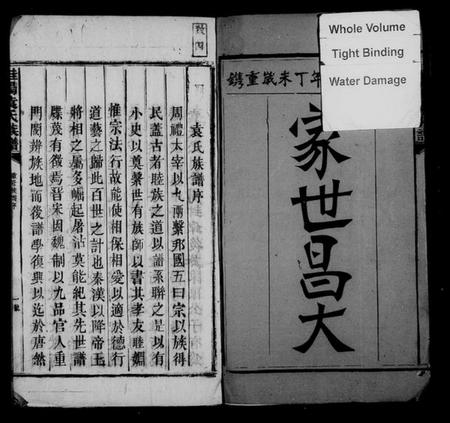 Whole Volume
Tight Binding
Water Damage
年丁未歲重鐫
家世昌大
袁氏族譜序
周禮太宰以九兩繫邦國五曰宗以族得
民蓋古者睦族之道以譜系聯之是以有
小史以奠繫世有族師以書其孝友睦婣
惟宗法行故能使相保相愛以適於德行
道藝之歸此百世之計也秦漢以降帝王
將相之屬多崛起屠沽莫能紀其先世譜
牒蔑有徵焉晉宋因魏制以九品官人重
門閥辨族地而後譜學復興以迄於唐然
氏族譜